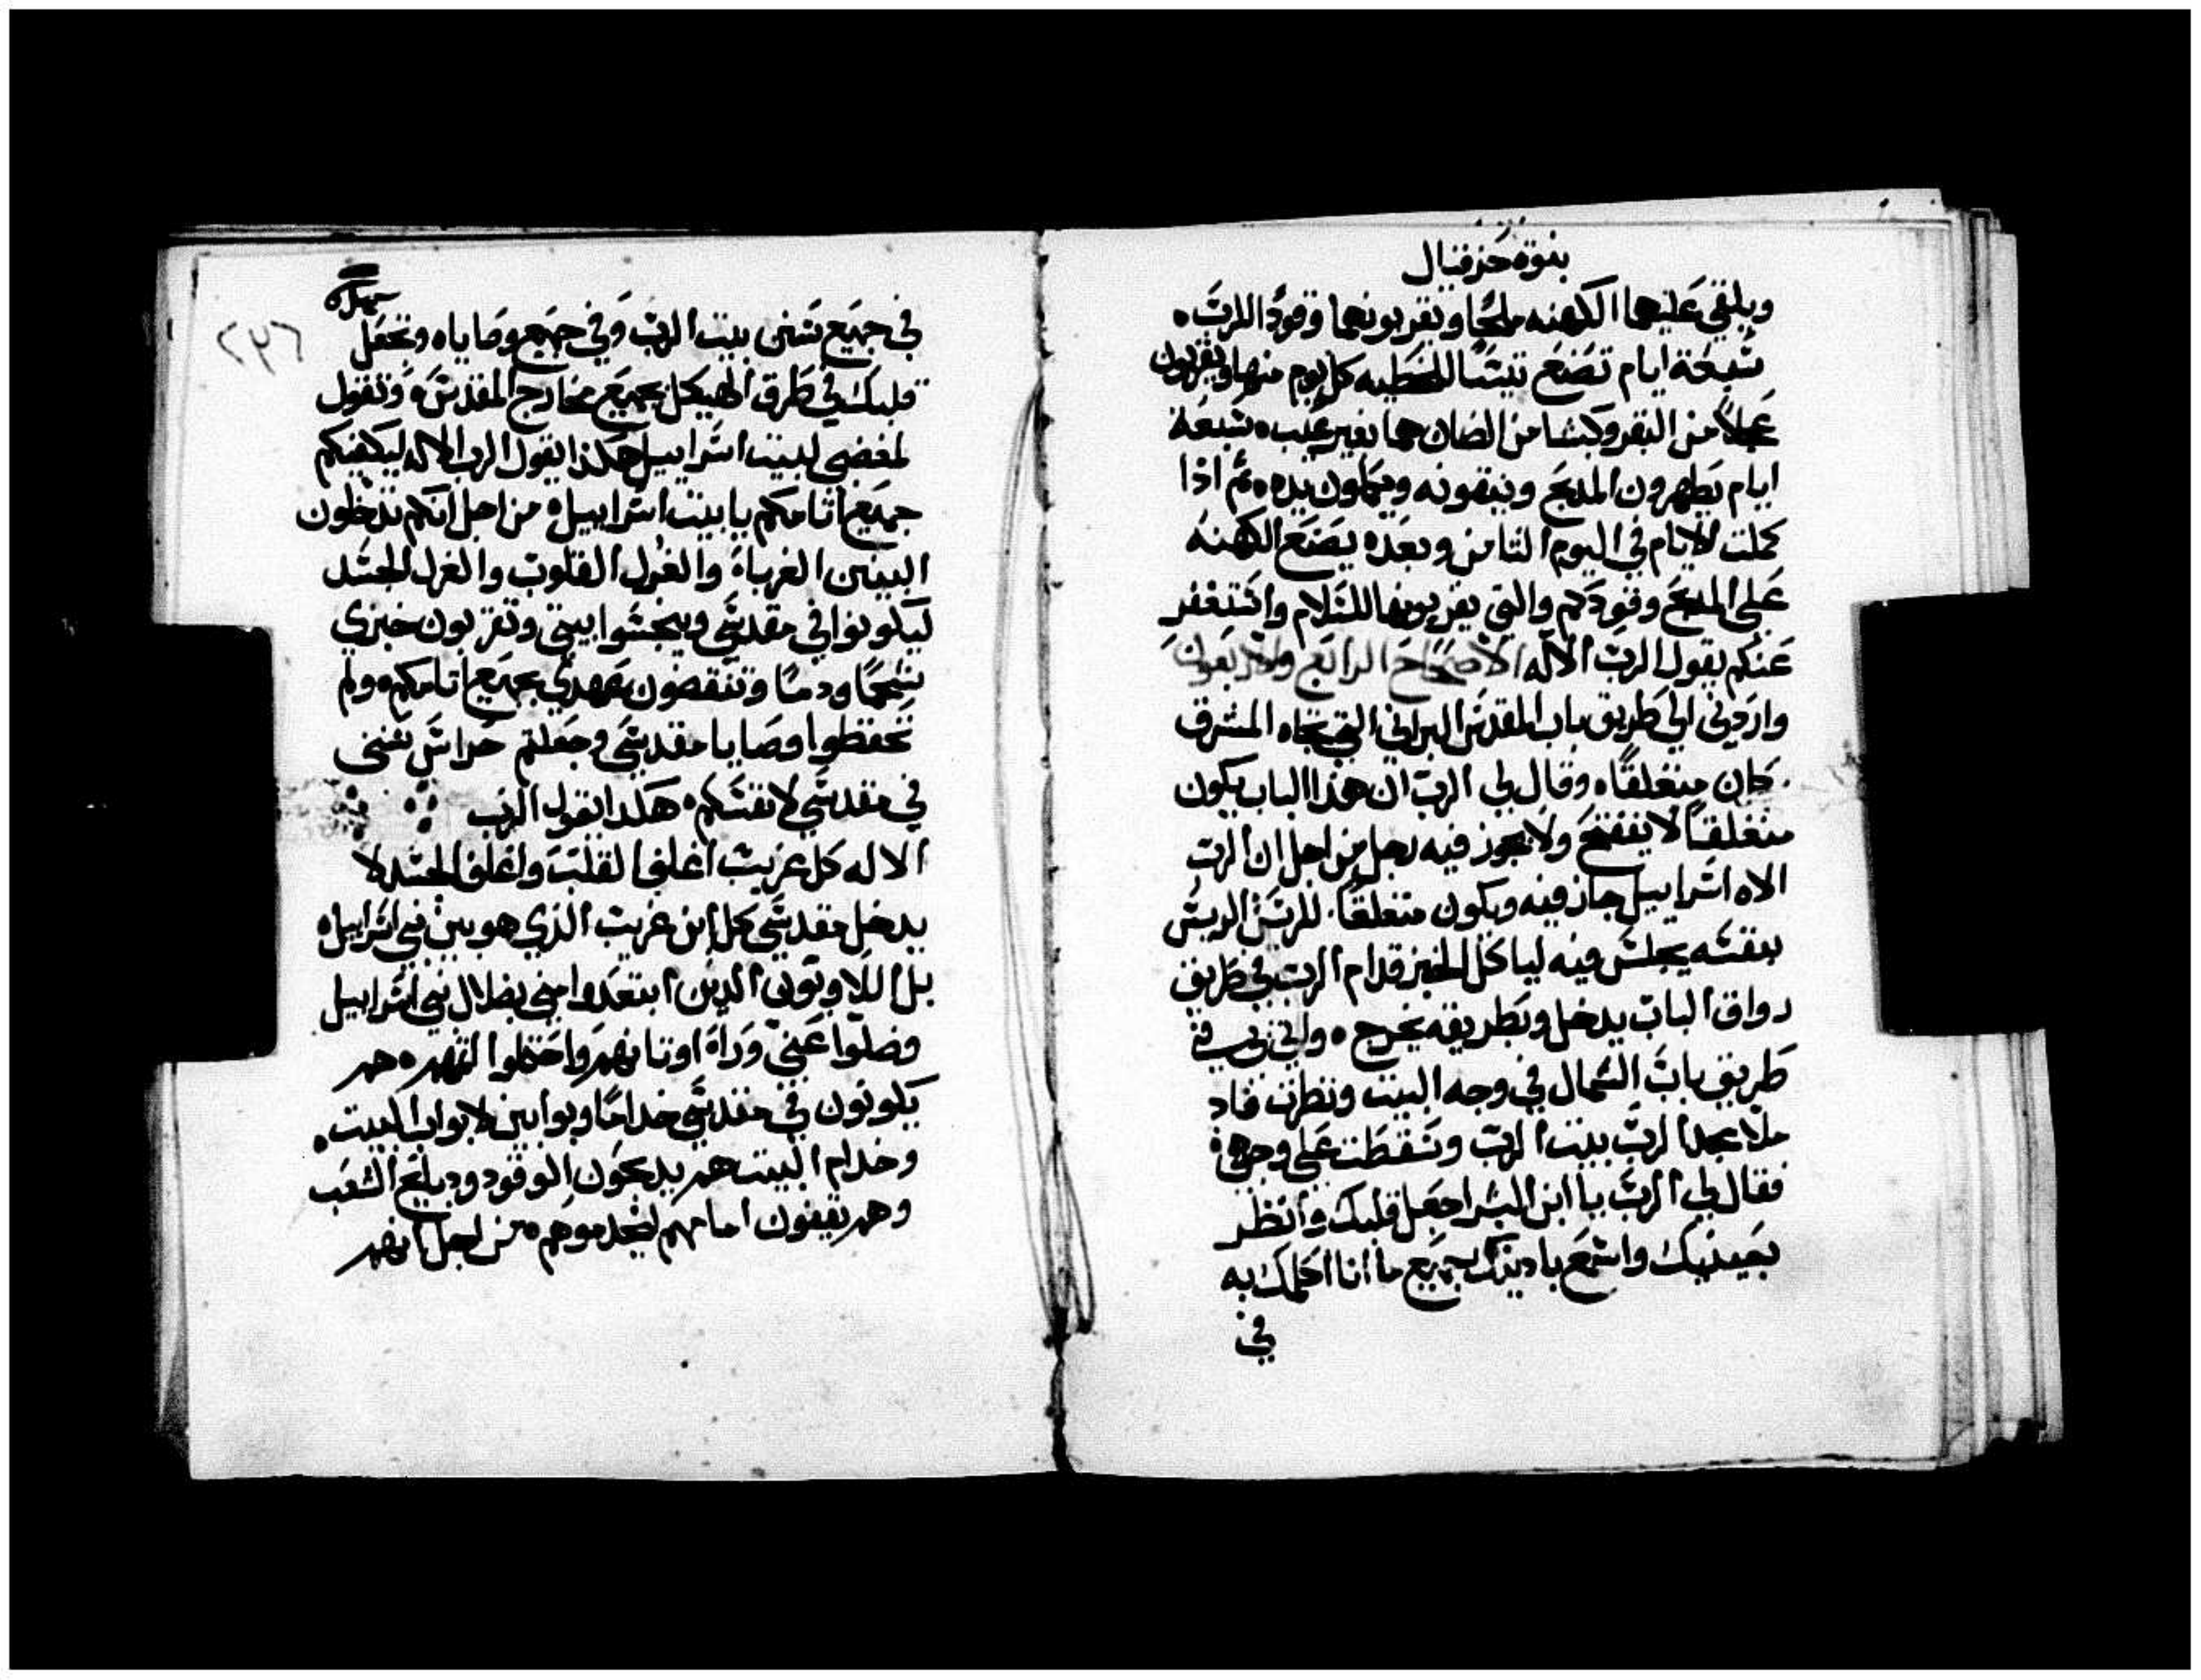 بنوة حزقيال
ويلقي عليهما الكهنه ملحًا ويقربونهما وقودًا للرب ه
سبعة ايام تصنع تيسًا للخطيه كل يوم منها ويقربون
عجلاً من البقر وكبشا من الضان هما بغير عيب ه سبعة
ايام يطهرون المدبح وينقونه ويكملون يده ه ثم اذا
كملت الايام في اليوم الثامن وبعده يصنع الكهنه
على المدبح وقودكم والتي يقربونها للسلام واستغفر
عنكم يقول الرب الاله الاصحاح الرابع والاربعون
واردني الي طريق باب المقدس البراني التي تجاه المشرق
كان منغلقًا ه وقال لي الرب ان هذا الباب يكون
منغلقًا لا يفتح ولا يجوز فيه رجل من اجل ان الرب
الاه اسراييل جاز فيه ويكون منغلقًا للريس الريس
بنفسه يجلس فيه لياكل الخبز قدام الرب في طريق
رواق الباب يدخل وبطريقه يخرج ه واتي بي في
طريق باب الشمال في وجه البيت ونظرت فاد
ملا مجد الرب بيت الرب وسقطت على وجهي ه
فقال لي الرب يا ابن البشر اجعل قلبك وانظر
بعينيك واسمع بادينك بجميع ما انا اكلمك به
في
في جميع سنن بيت الرب وفي جميع وصاياه وتجعل
قلبك في طرق الهيكل بجميع مخارج المقدس ه وتقول
لمغضبي لبيت اسراييل هكذا يقول الرب الاله ليكفيكم
جميع اثامكم يا بيت اسراييل ه من اجل انكم تدخلون
البنين الغرباة والغرل القلوب والغرل الجسد
ليكونوا في مقدسي وينجسوا بيتي وتقربون خبزي
شحمًا ودمًا وتنقضون عهدي بجميع اثامكم ه ولم
تحفظوا وصايا مقدسي وجعلتم حراس سنني
في مقدسي لانفسكم ه هكدا يقول الرب
الاله كل غريب اغلف القلب واغلف الجسد لا
يدخل مقدسي كل ابن غريب الذي هو بين بني اسراييل ه
بل اللاويون الدين ابتعدوا مني بضلال بني اسراييل
وضلوا عني وراة اوثانهم واحتملوا اثمهم ه هم
يكونون في مقدسي خدامًا وبوابين لابواب البيت ه
وخدام البيت هم يدبحون الوقود ودبايح الشعب
وهم يقفون امامهم ليخدموهم ه من اجل انهم